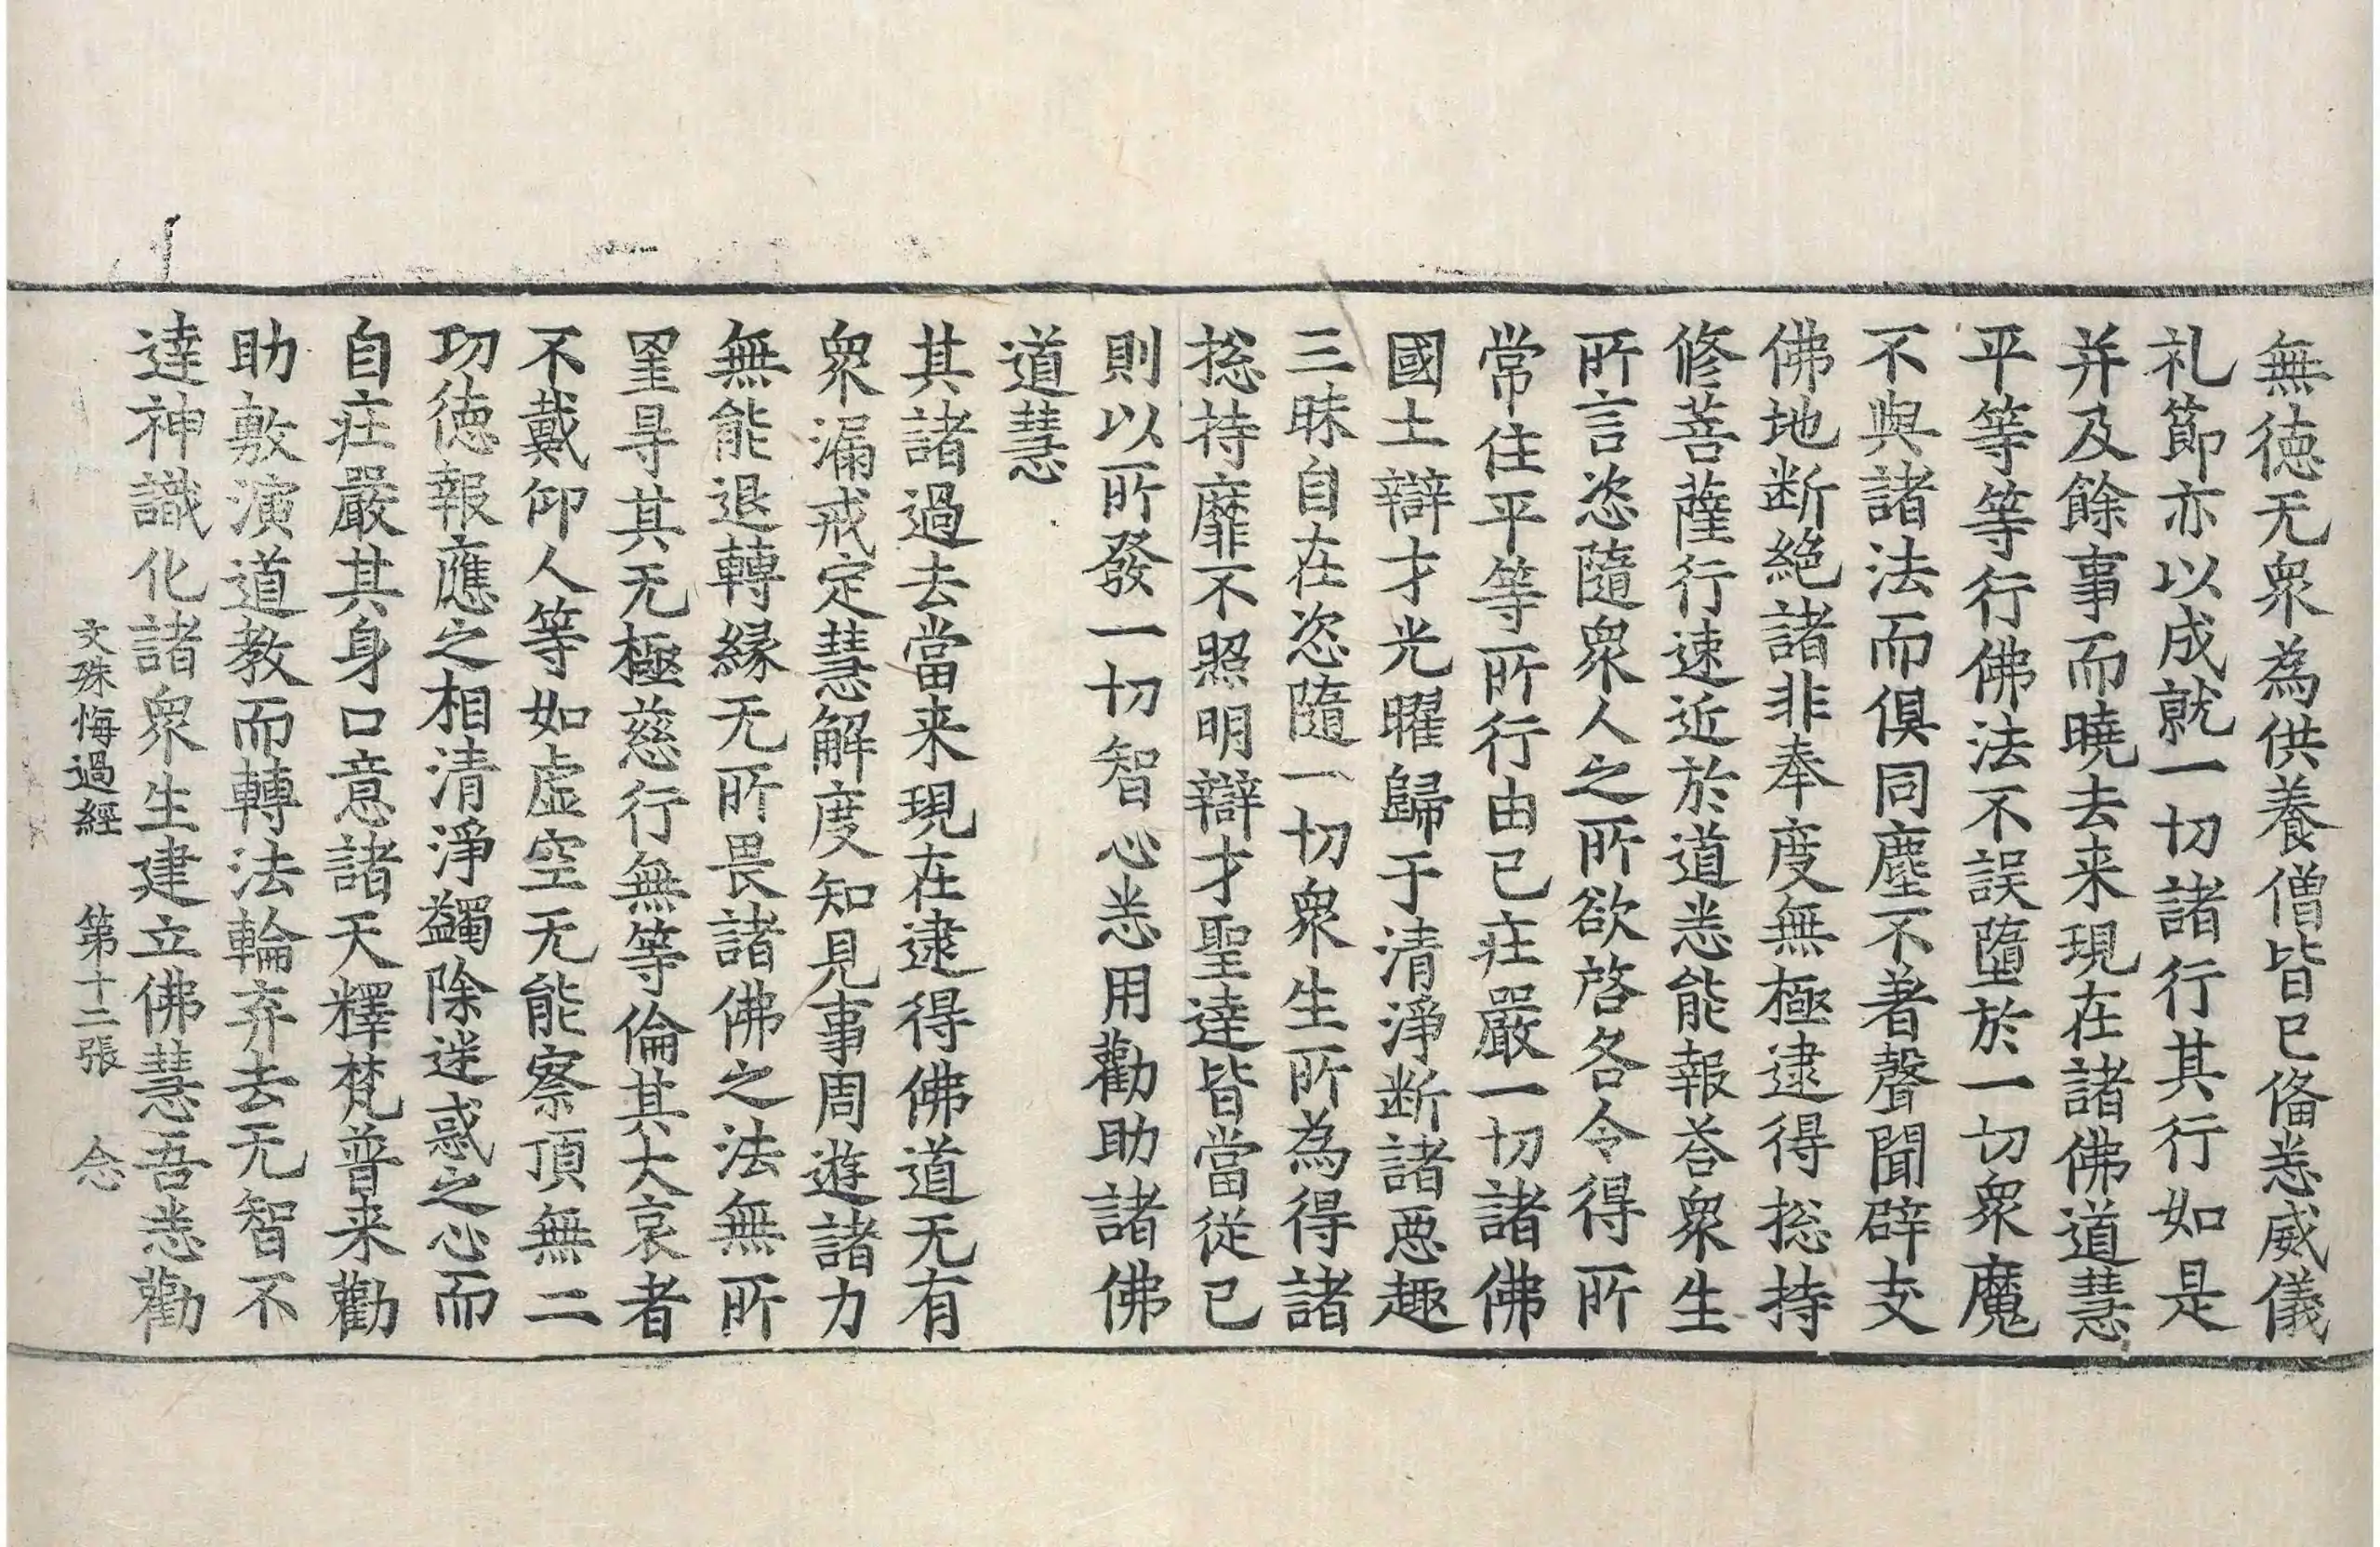 無徳无衆為供養僧皆已俻悉威儀
礼節亦以成就一切諸行其行如是
并及餘事而曉去来現在諸佛道慧
平等等行佛法不誤墮於一切衆魔
不與諸法而俱同塵不著聲聞辟支
佛地断絕諸非奉度無極逮得捴持
修菩薩行速近於道悉能報荅衆生
所言恣隨衆人之所欲啓各令得所
常住平等所行由已荘嚴一切諸佛
國土辯才光曜歸于清淨断諸惡趣
三昧自在恣隨一切衆生所為得諸
捴持靡不照明辯才聖達皆當従已
則以所發一切智心悉用勸助諸佛
道慧
其諸過去當来現在逮得佛道无有
衆漏戒定慧解度知見事周遊諸力
無能退轉縁无所畏諸佛之法無所
罣㝵其无極慈行無等倫其大哀者
不戴仰人等如虚空无能察頂無二
功徳報應之相清淨蠲除迷惑之心而
自荘嚴其身口意諸天釋梵普来勸
助敷演道教而轉法輪弃去无智不
達神識化諸衆生建立佛慧吾悉勸
文殊悔過經 第十二張 念